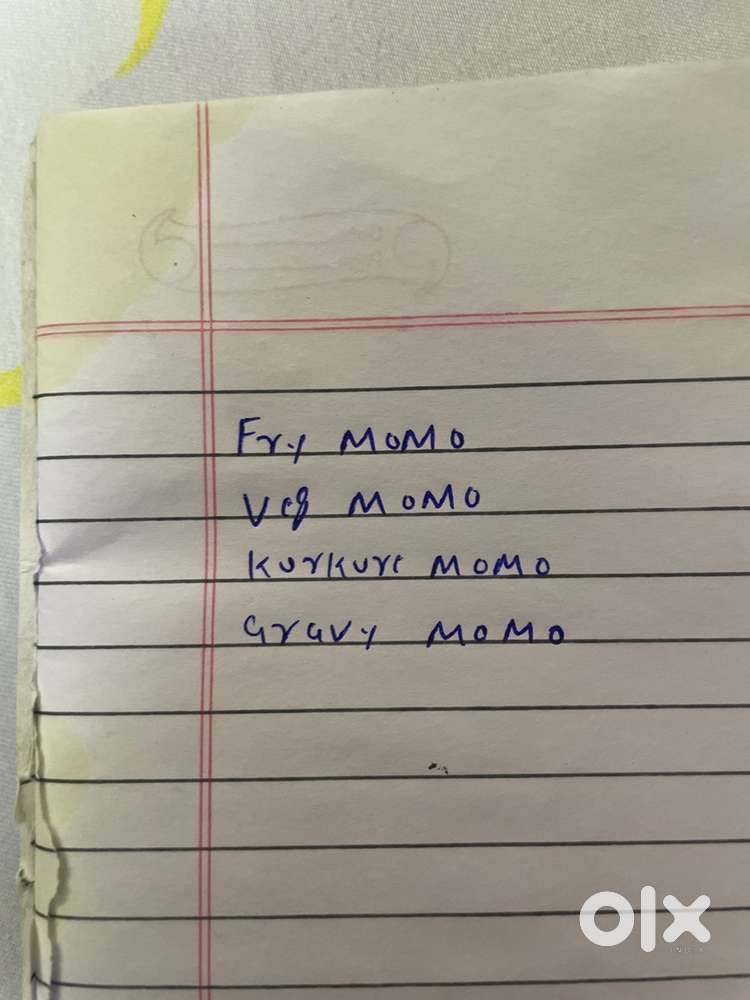 Fry MOMO
Veg MOMO
Kurkure MOMO
Gravy MOMO
olx
INDIA